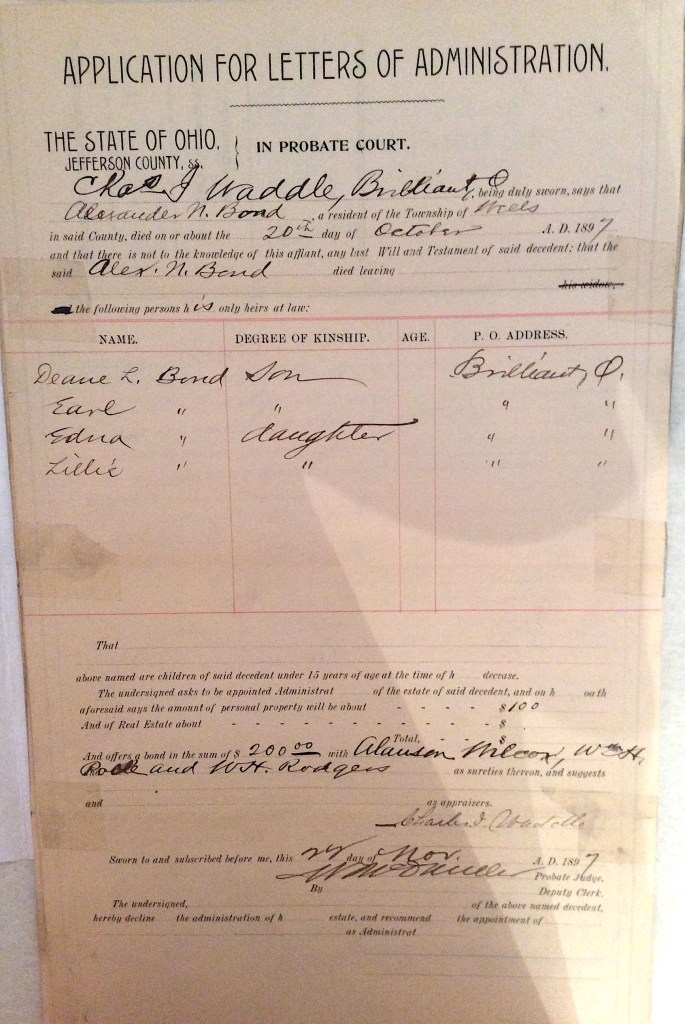 APPLICATION FOR LETTERS OF ADMINISTRATION.
THE STATE OF OHIO,
JEFFERSON COUNTY, ss.
IN PROBATE COURT.
Chas I Waddle, Brilliant O, being duly sworn, says that
Alexander N. Bond, a resident of the Township of Wells
in said County, died on or about the 20th day of October A. D. 1897
and that there is not to the knowledge of this affiant, any last Will and Testament of said decedent; that the
said Alex. N. Bond died leaving
his widow,
the following persons his only heirs at law:
NAME. DEGREE OF KINSHIP. AGE. P. O. ADDRESS.
Deane L. Bond Son Brilliant, O.
Earl " " " "
Edna " daughter " "
Lillie " " " "
That
above named are children of said decedent under 15 years of age at the time of h decease.
The undersigned asks to be appointed Administrat of the estate of said decedent, and on h oath
aforesaid says the amount of personal property will be about - - - - - $100
And of Real Estate about - - - - - - - - - - $
Total, - - $
And offers a bond in the sum of $ 200.00 with Alanson Wilcox, Wm H.
and W.H. Rodgers as sureties thereon, and suggests
and as appraivers.
Charles I. Waddle
Sworn to and subscribed before me, this day of Nov. A. D. 1897
Probate Judge.
By Deputy Clerk.
The undersigned, of the above named decedent,
hereby decline the administration of h estate, and recommend the appointment of
as Administrat